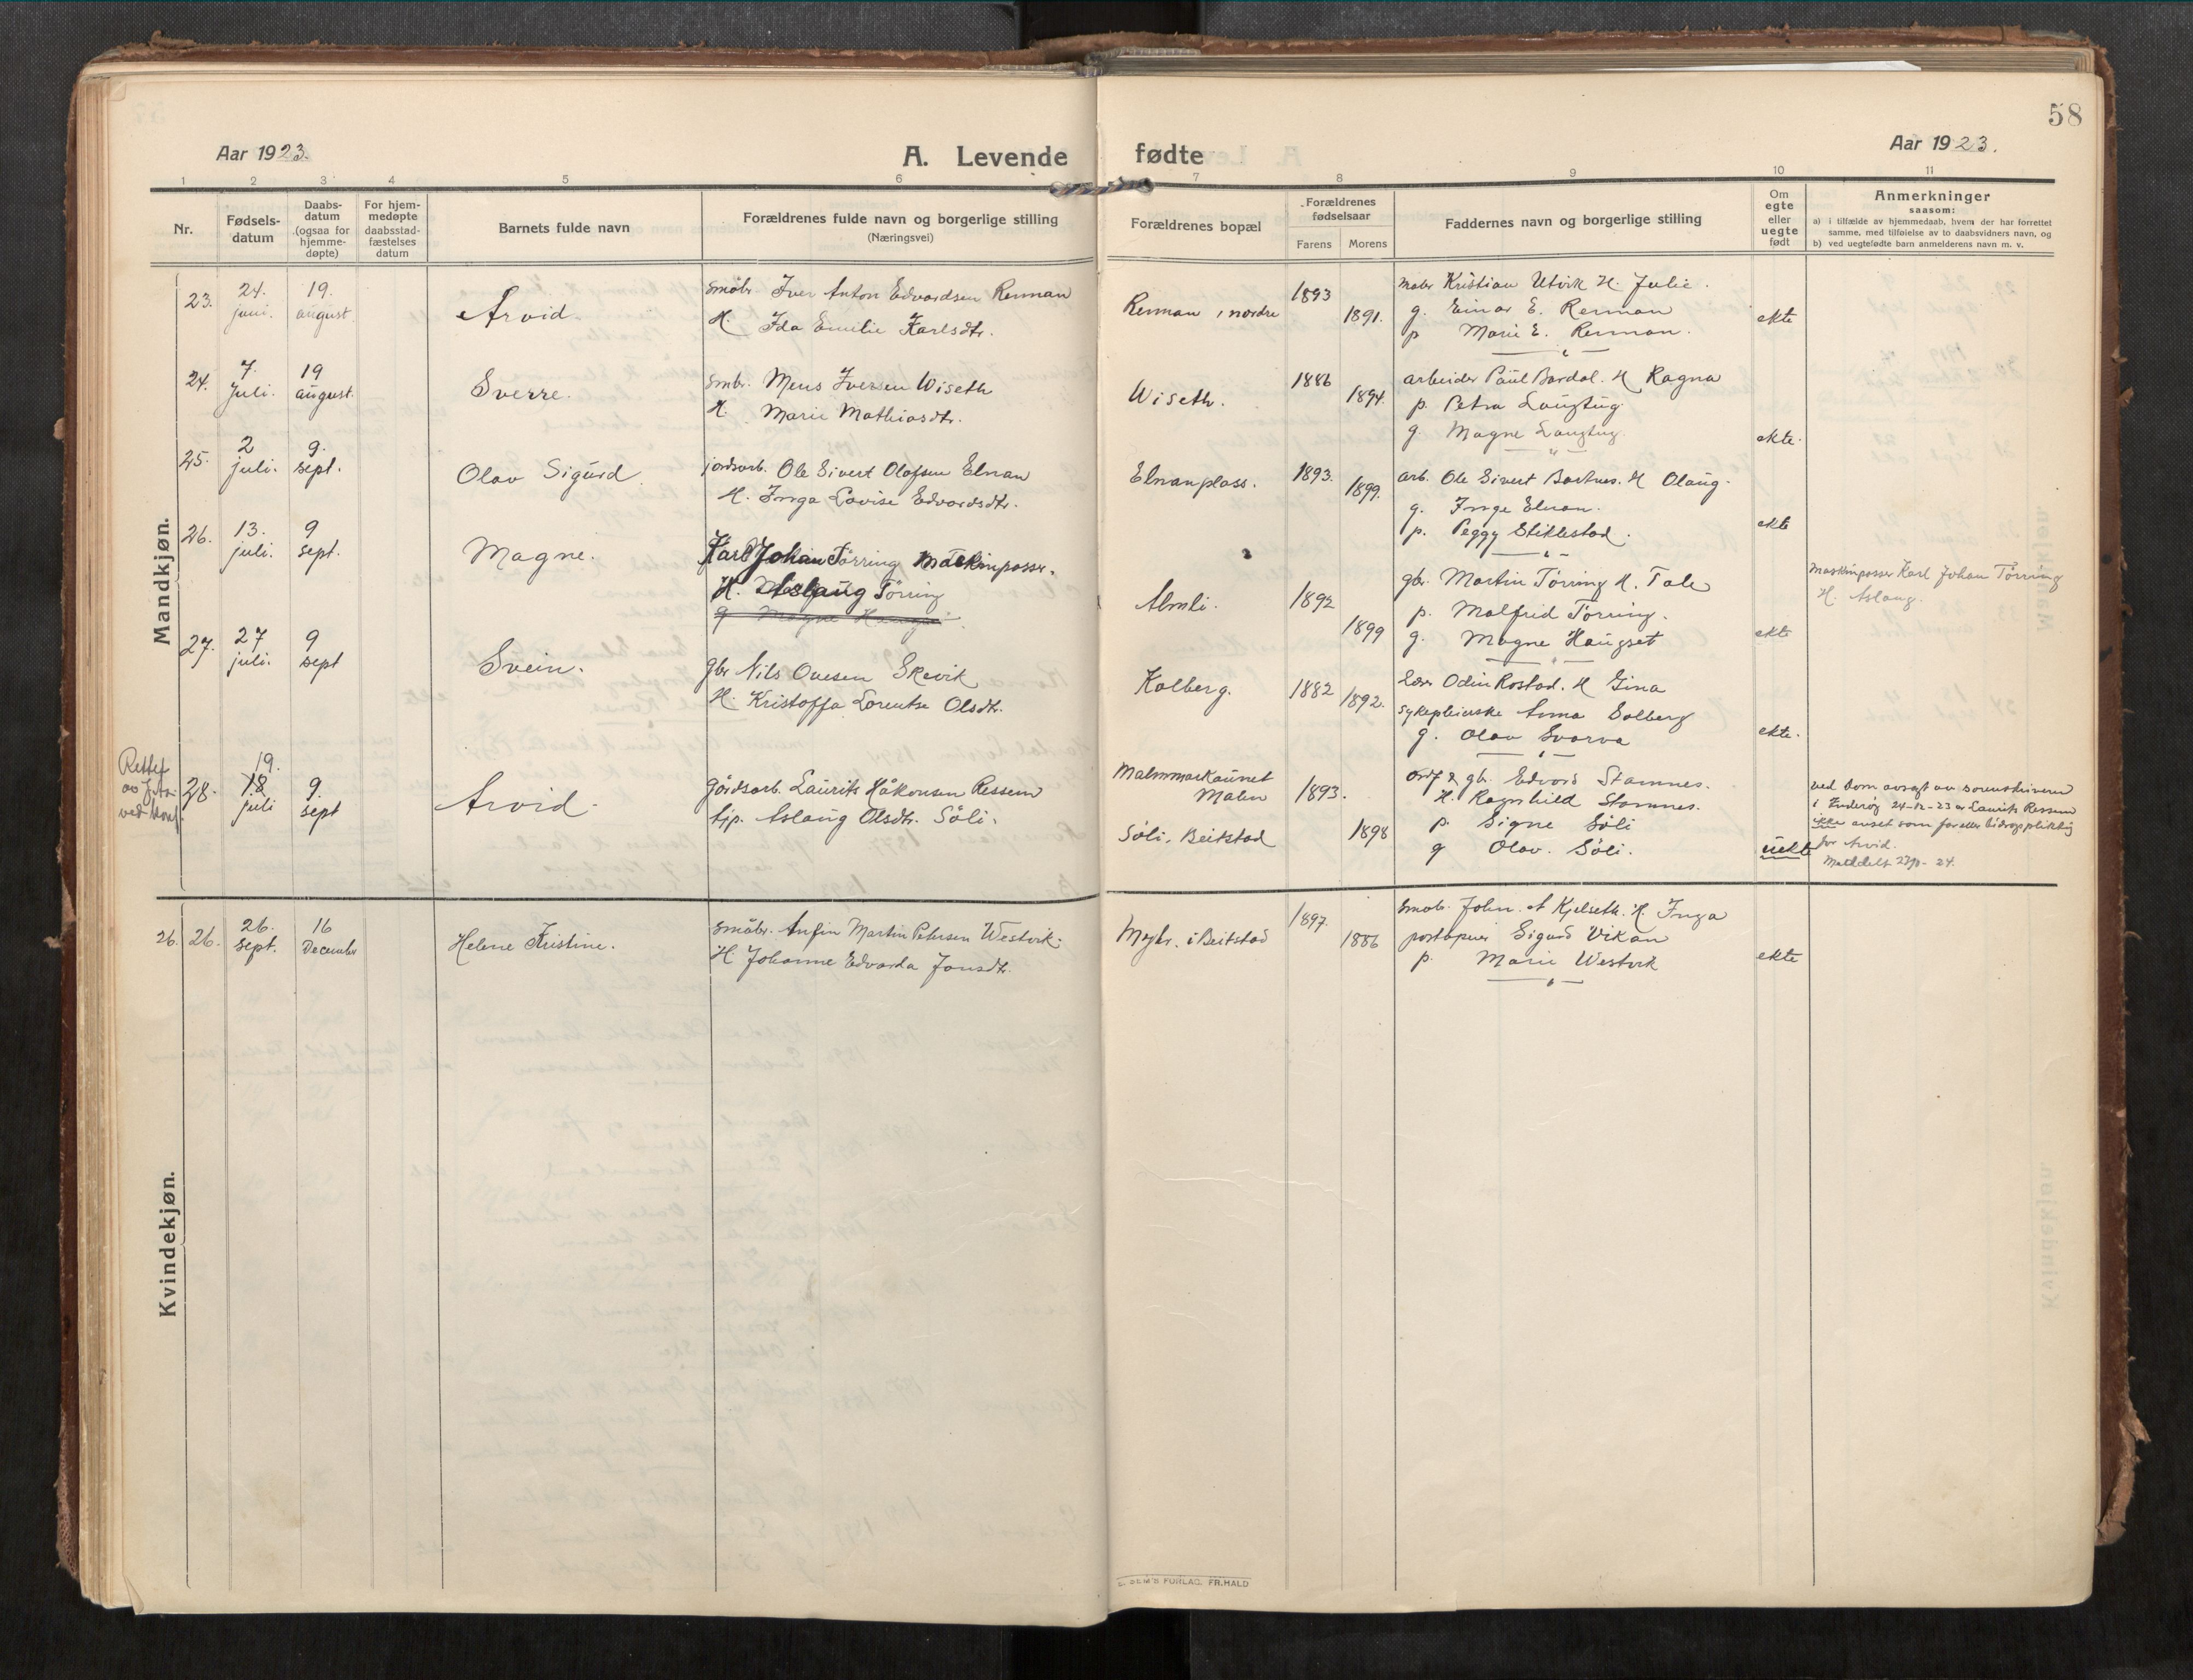 58
Aar 1923.
A. Levende fødte
Aar 1923.
1 2 3 4 5 6 7 8 9 10 11
Nr.
Fødsels-
datum
Daabs-
datum
(ogsaa for
hjemme-
døpte)
For hjem-
medøpte
daabsstad-
fæstelses
datum
Barnets fulde navn
Forældrenes fulde navn og borgerlige stilling
(Næringsvei)
Forældrenes bopæl
Forældrenes
fødselsaar
Farens Morens
Faddernes navn og borgerlige stilling
Om
egte
eller
uegte
født
Anmerkninger
saasom:
a) i tilfælde av hjemmedaab, hvem der har forrettet
samme, med tilføielse av to daabsvidners navn, og
b) ved uegtefødte barn anmelderens navn m. v.
Mandkjøn.
23. 24. juni. 19. august. Arvid.
småbr. Iver Anton Edvardsen Renman
H. Ida Emelie Karlsdtr.
Renman, nordre 1893 1891.
Kristian Utvik H. Julie.
g. Einar E. Renman
p Marie E. Renman.
ekte
24. 7. Juli. 19 august. Sverre.
smbr. Meus Iversen Wiseth
H. Marie Mathiasdtr.
Wiseth. 1886 1894.
arbeider Paul Bardal. H Ragna
p. Petra Langtug
g. Magne Langtug
ekte.
25. 2 juli. 9. sept. Olav Sigurd.
jordarb. Ole Sivert Olafsen Elnan
H. Inga Lovise Edvardsdtr.
Elnanplass. 1893. 1899.
arb. Ole Sivert Bartnes. H Olaug.
g. Inge Elnan.
p. Peggy Stiklestad.
ekte
26. 13. juli. 9 sept. Magne.
Karl Johan Tørring maskinpasser.
H. Aslaug Tørring
g Magne Haugset
Almli. 1892 1899
gbr. Martin Tørring H. Tale
p. Malfrid Tørring.
g. Magne Haugset
ekte
Maskinpasser Karl Johan Tørring
H. Aslaug.
27. 27 juli. 9 sept Svein.
gbr Nils Ovesen Skevik
H. Kristoffa Lorentse Olsdtr.
Kolberg. 1882 1892.
Lær. Odin Rostad. H Gina
sykepleierske Anna Solberg
g. Olav Svarva
ekte.
Rettet
av
ved
28. 19. 18 juli 9. sept Arvid.
gårdsarb. Laurits Håkonsen Ressem
tjp. Aslaug Olsdtr. Søli.
Malm
Søli, Beitstad
1893. 1898
ordf & gbr. Edvard Stamnes.
H. Ragnhild Stamnes.
p. Signe Søli
g Olav. Søli.
uekte
ved dom avsagt av sorenskriveren
i Inderøy 24-12-23 er Laurits Ressem
ikke anset som far eller bidragspliktig
for Arvid.
Kvindekjøn.
26. 26. 26. sept. 16 December Helene Kristine.
småbr. Anfin Martin Petersen Westvik.
H. Johanne Edvarda Jonsdtr.
i Beitstad 1897. 1886
småb. John. A Kjelseth. H. Inga
poståpner Sigurd Vikan
p. Marie Westvik
ekte
E. SEM'S FORLAG. FR. HALD